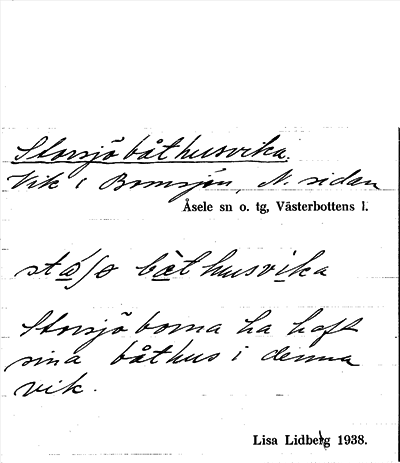 Storsjöbåthusvika.
Vik i Bomsjön, N. sidan
Åsele sn o. tg, Västerbottens l.
båthusvika
Storsjöborna ha haft
sina båthus i denna
vik.
Lisa Lidberg 1938.